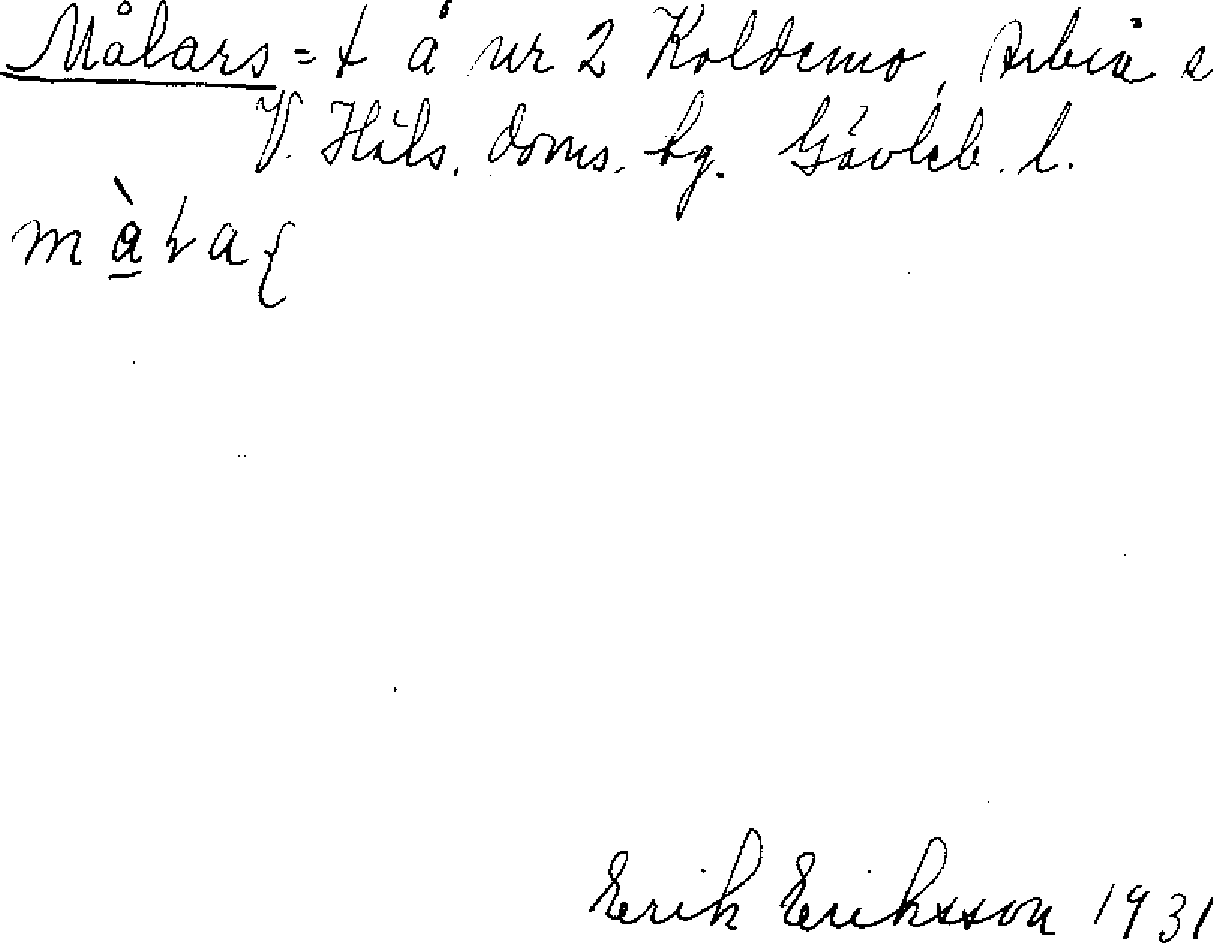 Målars = t å nr 2 Koldemo, Arbrå s
V. Häls. doms. hg. Gävleb. l.
Erik Eriksson 1931